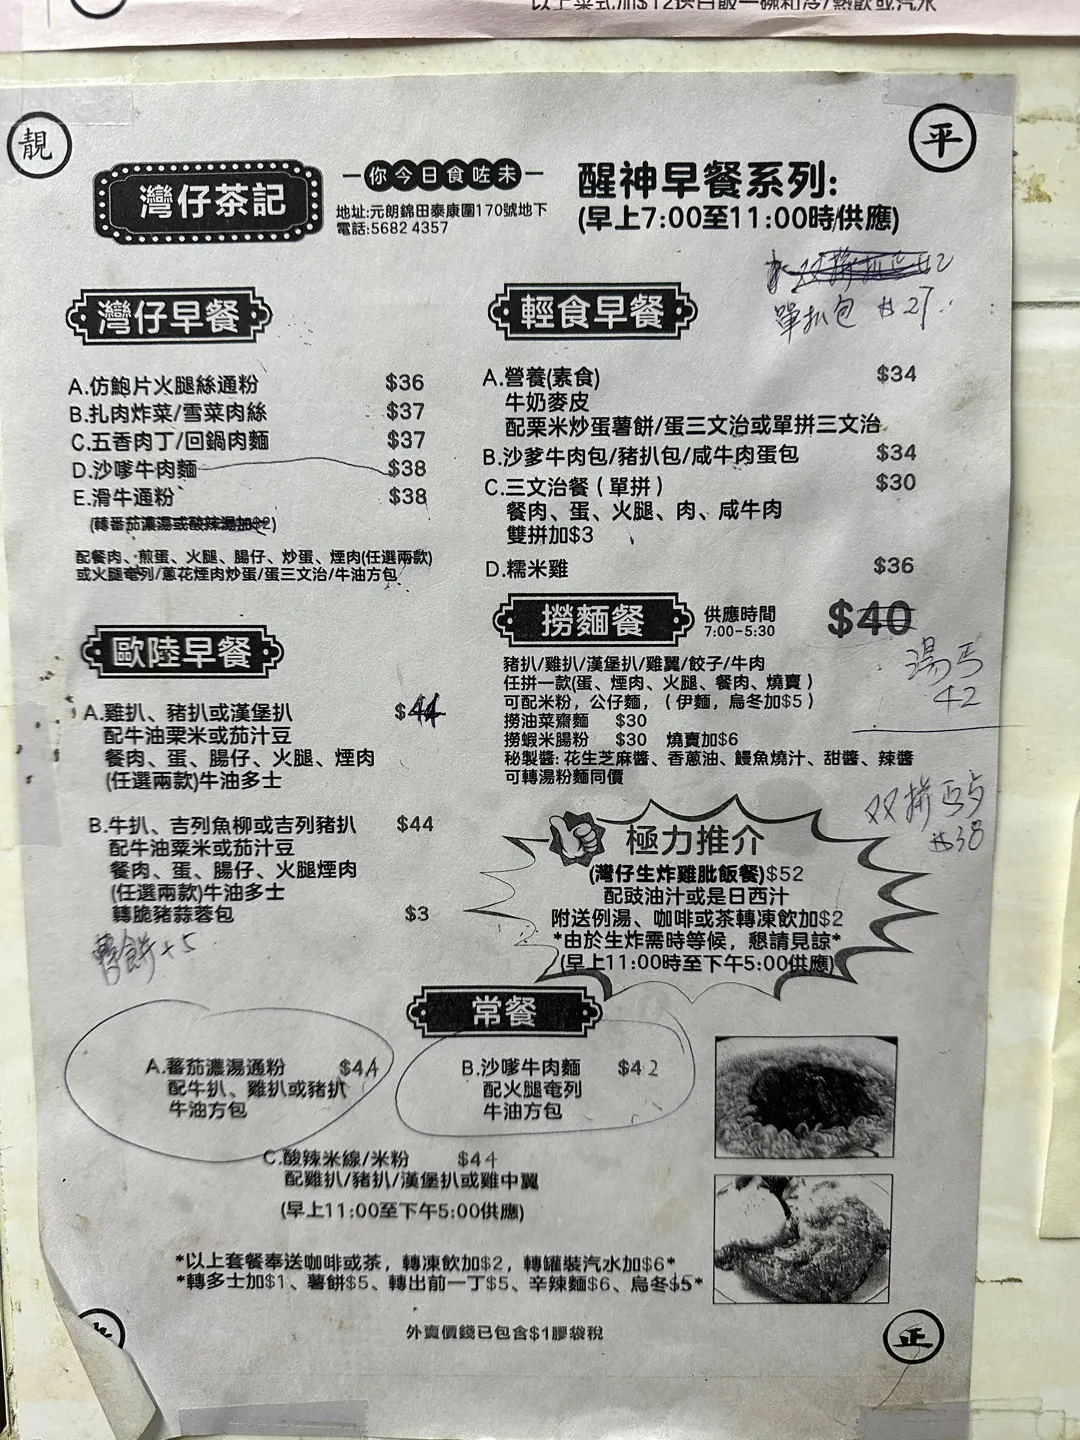 以上菜式加$12送白飯一碗和冷/熱飲或汽水
靚
平
灣仔茶記
你今日食咗未
地址:元朗錦田泰康圍170號地下
電話:5682 4357
醒神早餐系列:
(早上7:00至11:00時供應)
單扒包 $27.
灣仔早餐
A.仿鮑片火腿絲通粉 $36
B.扎肉炸菜/雪菜肉絲 $37
C.五香肉丁/回鍋肉麵 $37
D.沙嗲牛肉麵 $38
E.滑牛通粉 $38
(轉番茄濃湯或酸辣湯加$2)
配餐肉、煎蛋、火腿、腸仔、炒蛋、煙肉(任選兩款)
或火腿奄列/蔥花煙肉炒蛋/蛋三文治/牛油方包
歐陸早餐
A.雞扒、豬扒或漢堡扒 $44
配牛油栗米或茄汁豆
餐肉、蛋、腸仔、火腿、煙肉
(任選兩款)牛油多士
B.牛扒、吉列魚柳或吉列豬扒 $44
配牛油粟米或茄汁豆
餐肉、蛋、腸仔、火腿煙肉
(任選兩款)牛油多士
轉脆豬蒜蓉包 $3
薯餅+5
輕食早餐
A.營養(素食) $34
牛奶麥皮
配栗米炒蛋薯餅/蛋三文治或單拼三文治
B.沙爹牛肉包/豬扒包/咸牛肉蛋包 $34
C.三文治餐(單拼) $30
餐肉、蛋、火腿、肉、咸牛肉
雙拼加$3
D.糯米雞 $36
撈麵餐
供應時間
7:00-5:30
$40
湯丐
42
豬扒/雞扒/漢堡扒/雞翼/餃子/牛肉
任拼一款(蛋、煙肉、火腿、餐肉、燒賣)
可配米粉，公仔麵，(伊麵，烏冬加$5)
撈油菜齋麵 $30
撈蝦米腸粉 $30 燒賣加$6
秘製醬:花生芝麻醬、香蔥油、鰻魚燒汁、甜醬、辣醬
可轉湯粉麵同價
双拼
$38
極力推介
(灣仔生炸雞肶飯餐)$52
配豉油汁或是日西汁
附送例湯、咖啡或茶轉凍飲加$2
*由於生炸需時等候，懇請見諒*
(早上11:00時至下午5:00供應)
常餐
A.蕃茄濃湯通粉 $44
配牛扒、雞扒或豬扒
牛油方包
B.沙嗲牛肉麵 $42
配火腿奄列
牛油方包
C.酸辣米線/米粉 $44
配雞扒/豬扒/漢堡扒或雞中翼
(早上11:00至下午5:00供應)
*以上套餐奉送咖啡或茶，轉凍飲加$2，轉罐裝汽水加$6*
*轉多士加$1、薯餅$5、轉出前一丁$5、辛辣麵$6、烏冬$5*
外賣價錢已包含$1膠袋稅
正